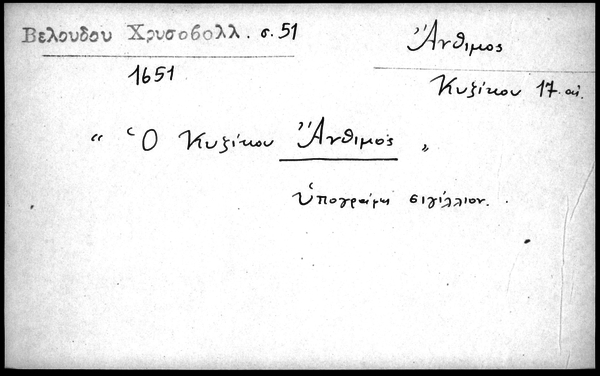 Βελουδου Χρυσοβολλ. σ. 51
Ἄνθιμος
1651
Κυζίκου 17. αἰ.
“ Ὁ Κυζίκου Ἄνθιμος „
ὑπογράφει σιγίλλιον.